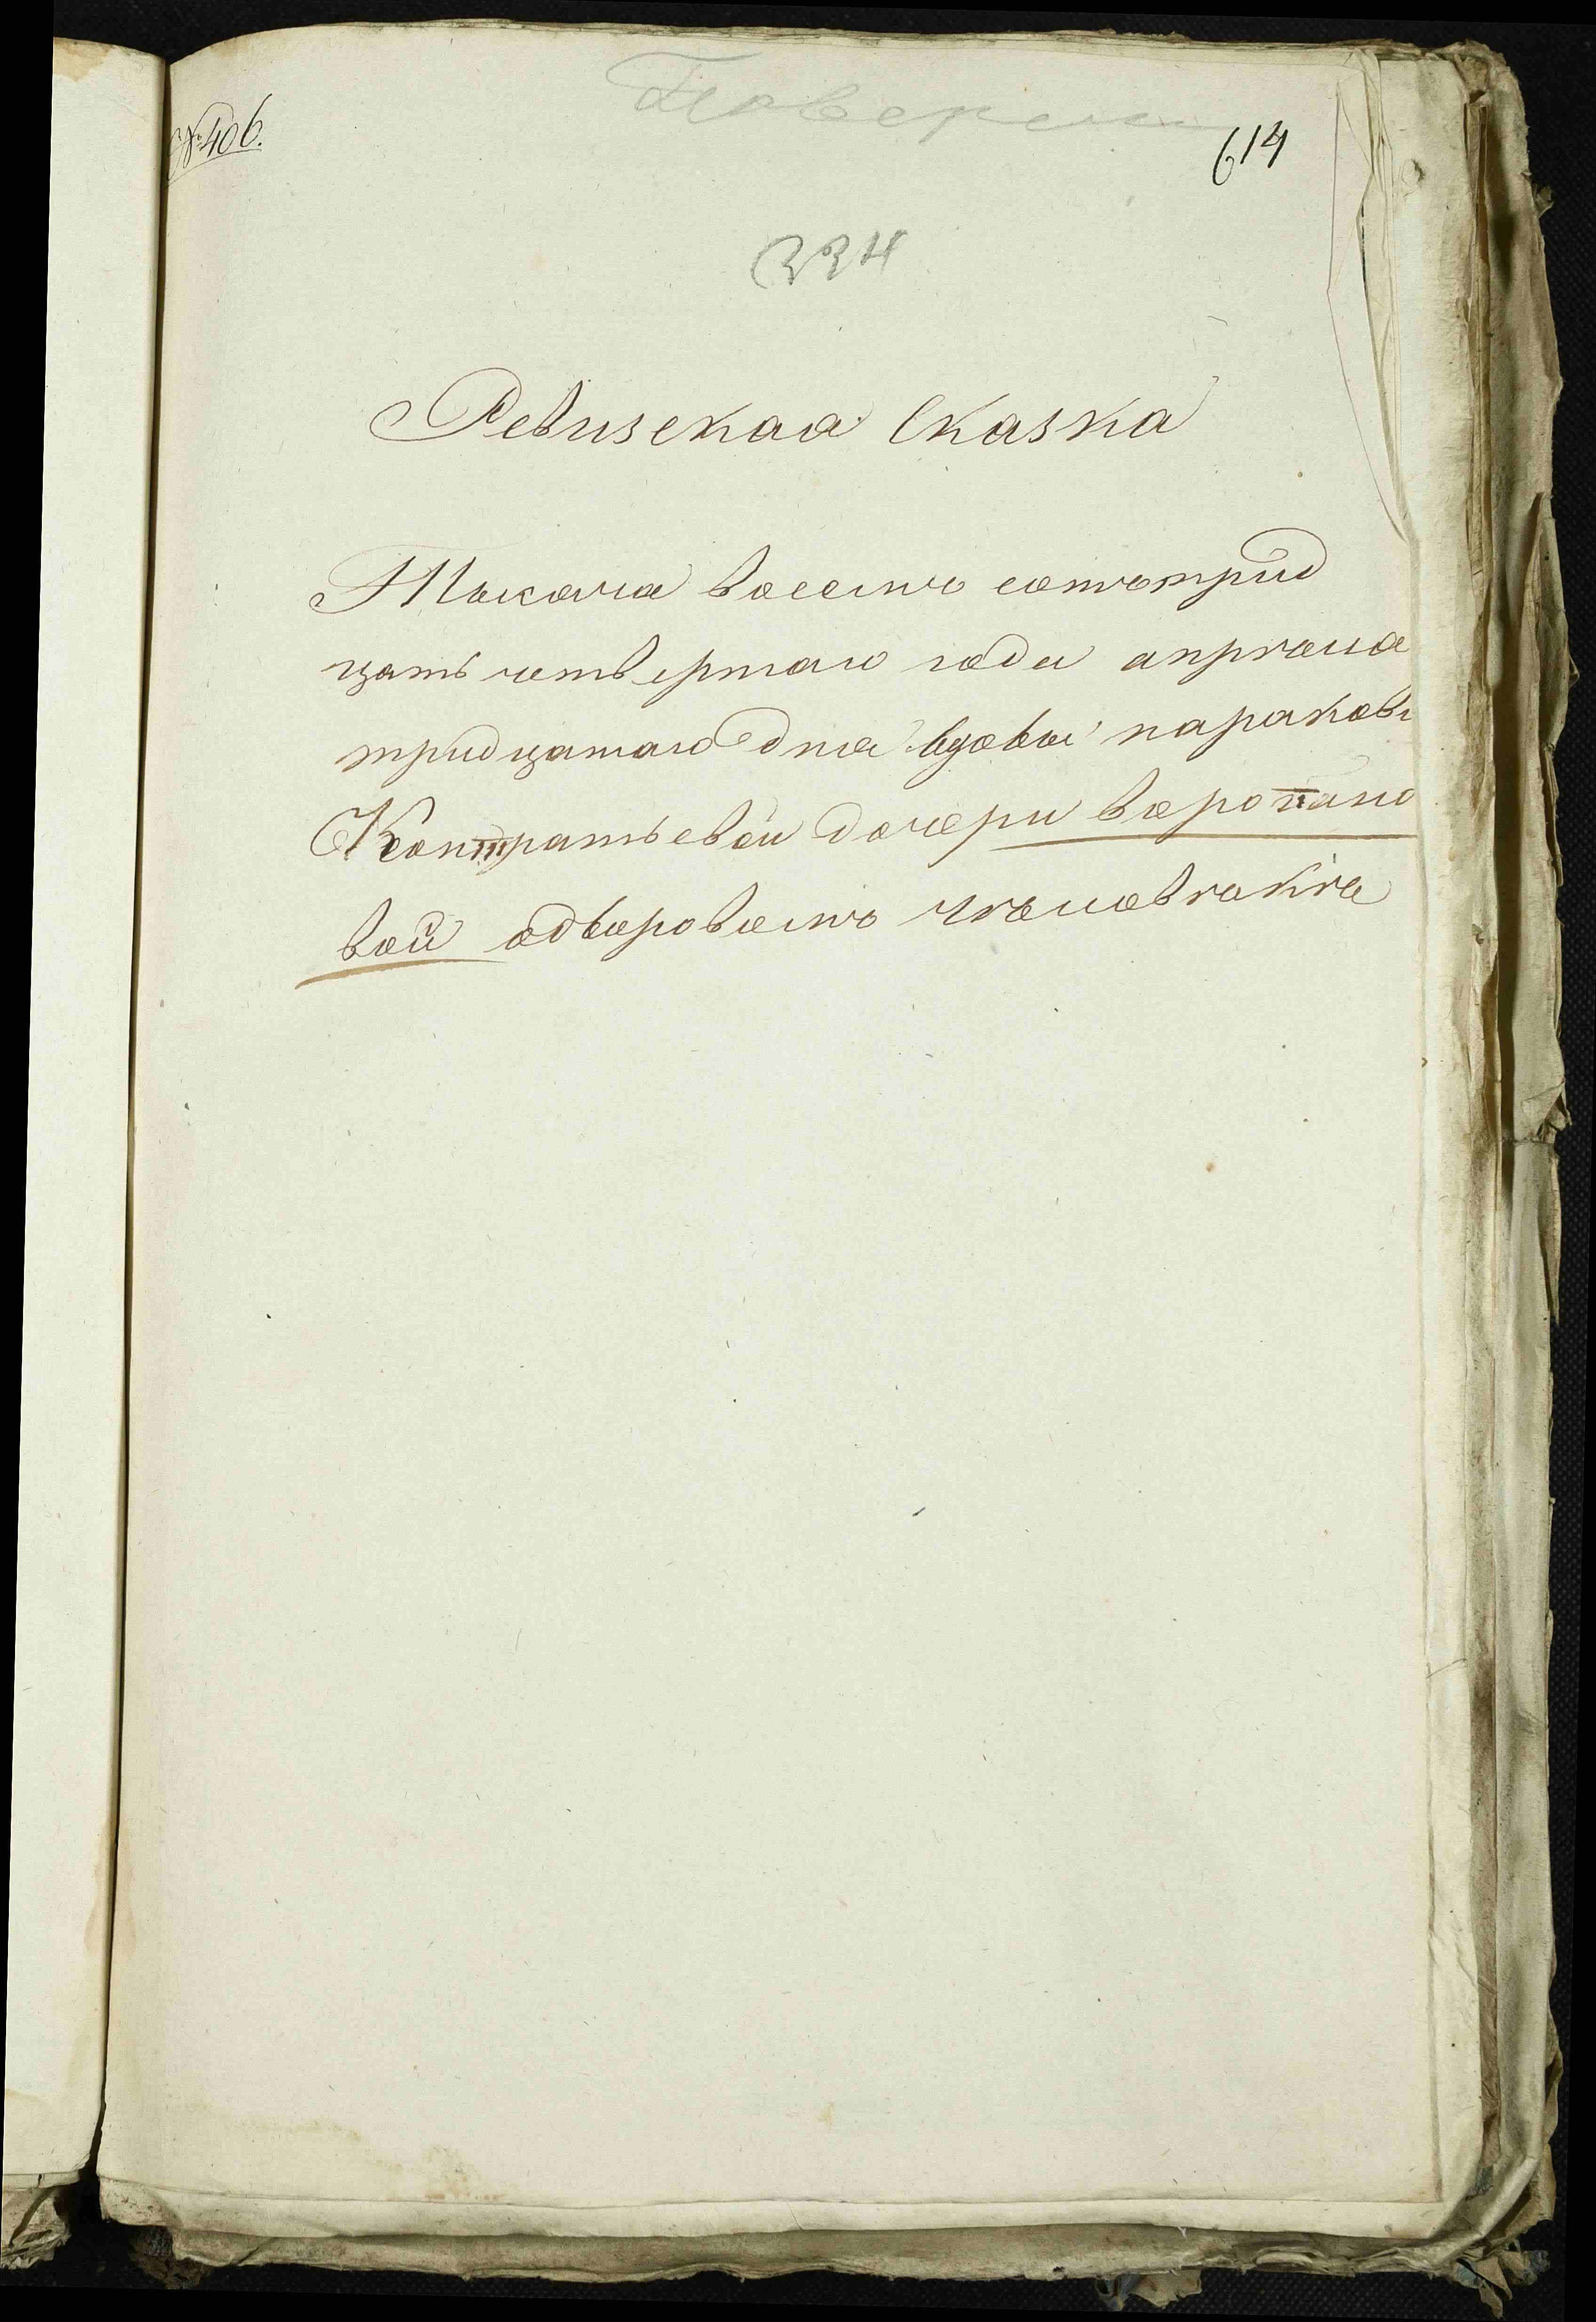 № 406.
Поверен
614
334
Ревизская Сказка
Тысеча восемъ сотътрид
цать четвертаго года апреля
тридцатаго дня вдовы параковь
Контратьевой дочери воропано
вой одворовомъ человекке